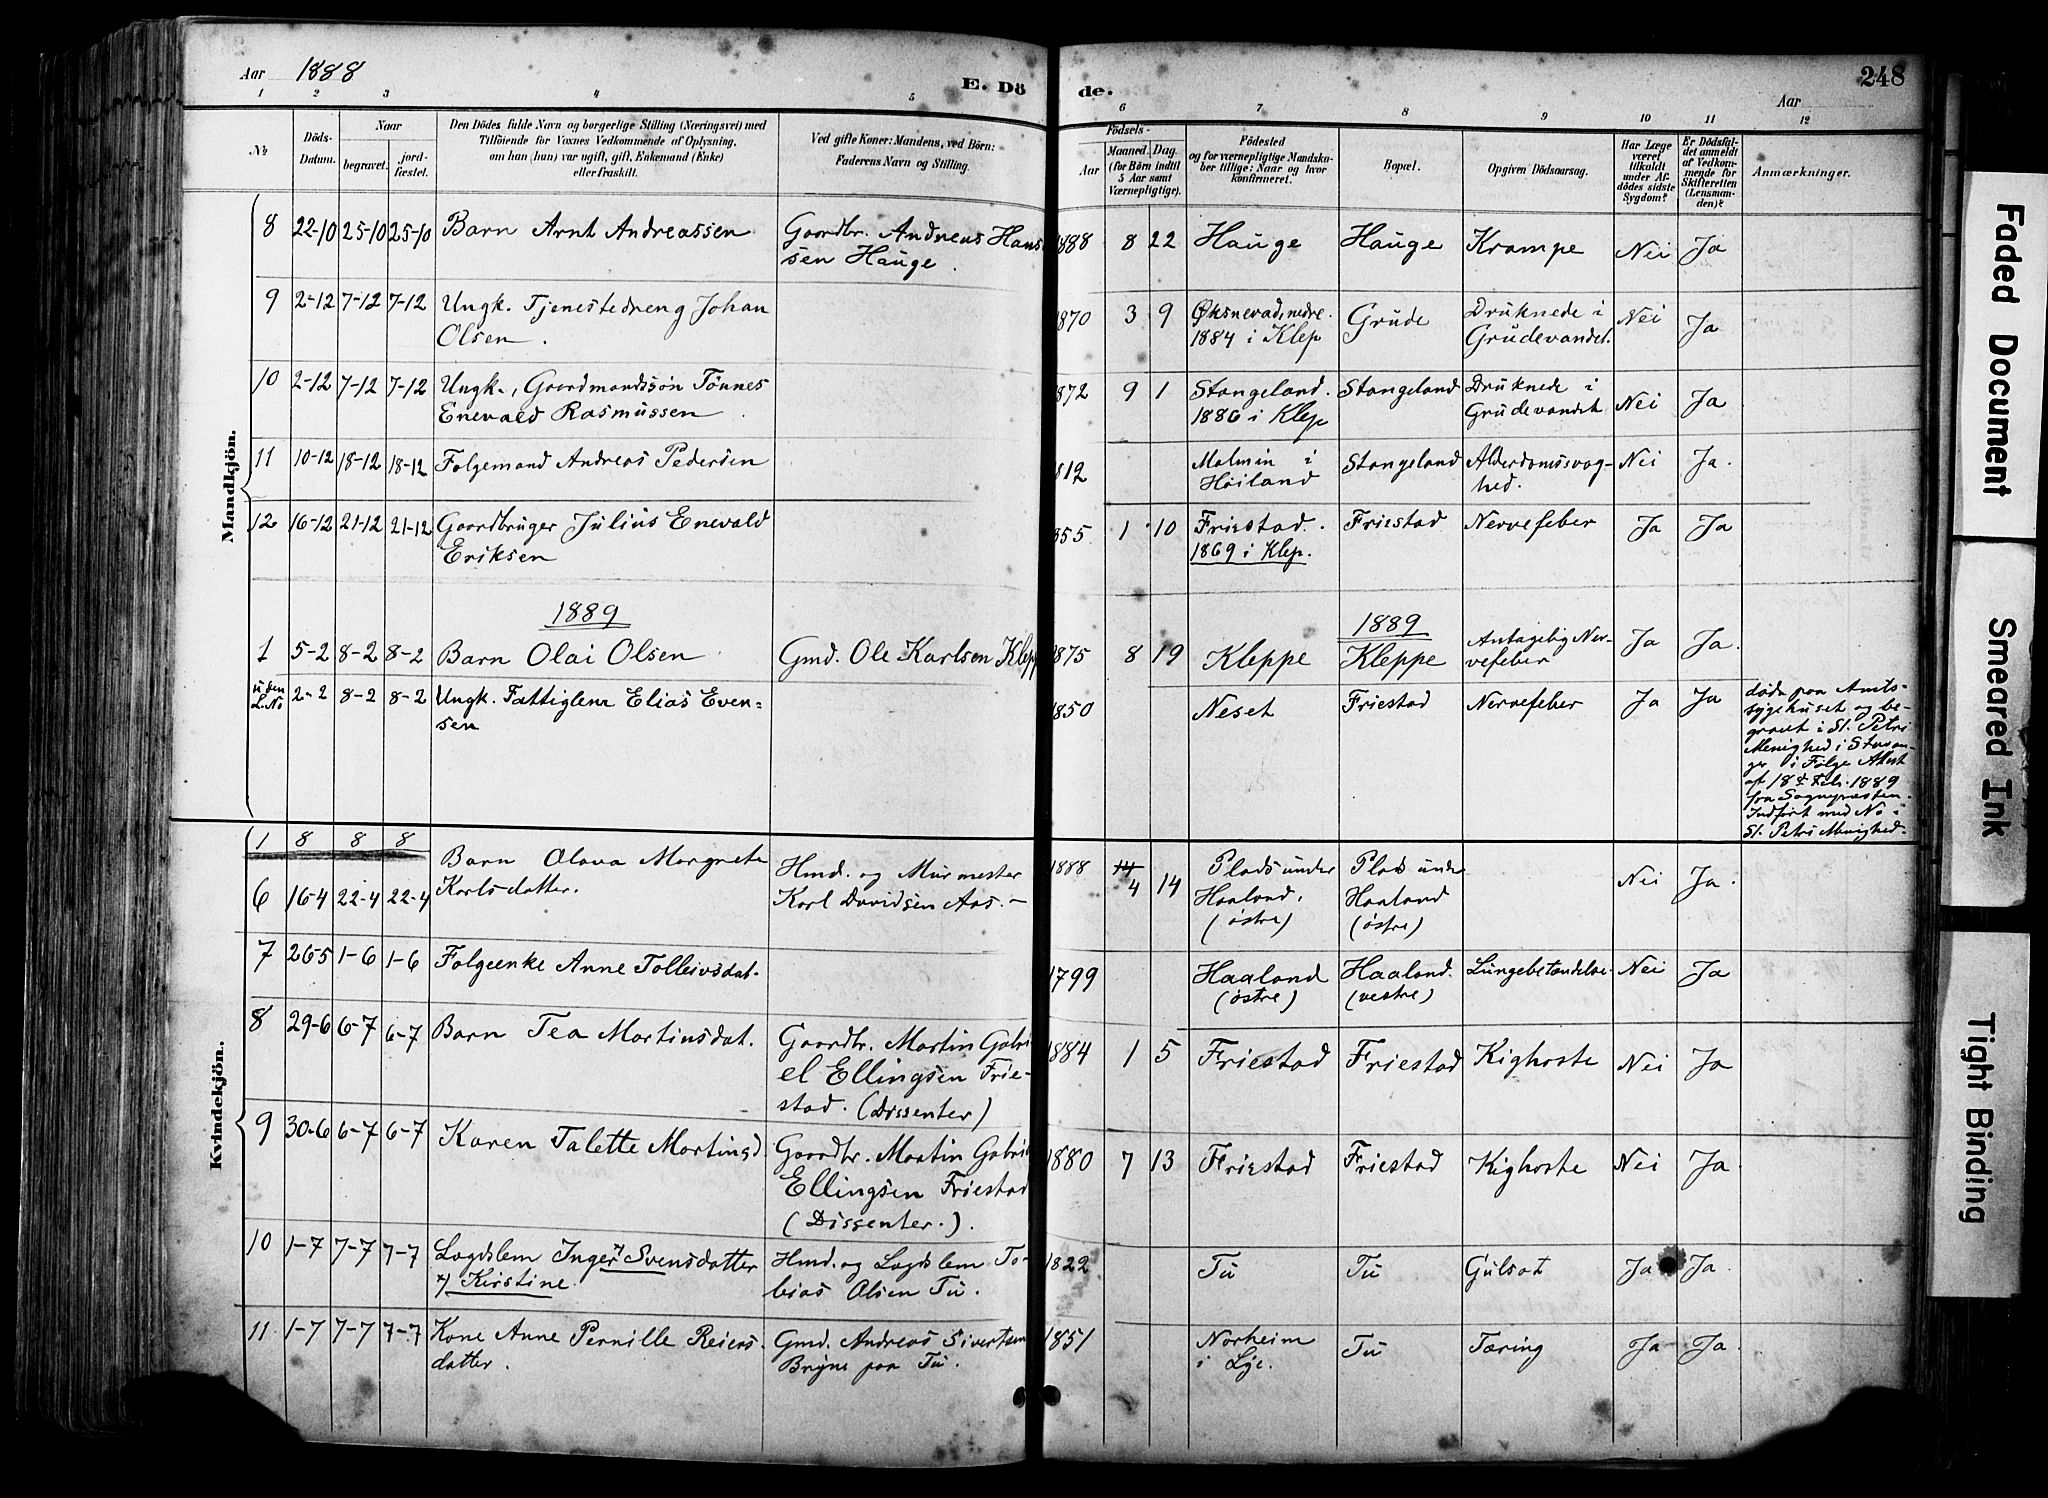 Aar 1888
E. Dö
de.
Aar
248
1 2 3 4 5 6 7 8 9 10 11 12
No
Döds-Datum.
Naar
begravet.
jord-fæstet.
Den Dödes fulde Navn og borgerlige Stilling (Næringsvei) med
Tilföiende for Voxnes Vedkommende af Oplysning,
om han (hun) var ugift, gift, Enkemand (Enke)
eller fraskilt.
Ved gifte Koner: Mandens, ved Börn:
Faderens Navn og Stilling.
Födsels-
Aar
Maaned. Dag.
(for Börn indtil
5 Aar samt
Værnepligtige).
Födested
og for værnepligtige Mandska-
ber tillige: Naar og hvor
konfirmeret.
Bopæl.
Opgiven Dödsaarsag.
Har Læge
været
tilkaldt
under Af-
dödes sidste
Sygdom?
Er Dödsfal-
det anmeldt
af Vedkom-
mende for
Skifteretten
(Lensman-
den)?
Anmærkninger.
Mandkjön.
8 22-10 25-10 25-10 Barn Arnt Andreassen Gaardbr. Andreas Hans 1888 8 22 Hauge Hauge Krampe Nei Ja
sen Hauge.
9 2-12 7-12 7-12 Ungk. Tjenestedreng Johan 1870 3 9 Øksnevad, nedre. Grude Druknede i Nei Ja
Olsen. 1884 i Klep Grudevandet.
10 2-12 7-12 7-12 Ungk., Gaardmandssøn Tønnes 1872 9 1 Stangeland. Stangeland Druknede i Nei Ja
Enevald Rasmussen. 1886 i Klep Grudevandet
11 10-12 18-12 18-12 Folgemand Andreas Pedersen 812 Malmin i Stangeland Alderdomssvag- Nei Ja.
Høiland hed.
12 16-12 21-12 21-12 Gaardbruger Julius Enevald 855 1 10 Friestad. Friestad Nervefeber Ja Ja
Eriksen 1869 i Klep.
1889 1889
1 5-2 8-2 8-2 Barn Olai Olsen Gmd. Ole Karlsen Klepp 1875 8 19 Kleppe Kleppe Antagelig Ner- Ja Ja.
vefeber
uden L.No 2-2 8-2 8-2 Ungk. Fattiglem Elias Even- 1850 Neset Friestad Nervefeber Ja Ja
sen
døde paa Amts-
sygehuset og be-
gravet i St. Petri
Menighed i Stavan-
ger i Følge Attest
af 18de Feb. 1889
fra Sognepresten.
Indført med No i
St. Petri Menighed.
Kvindekjön.
1 8 8 8
6 16-4 22-4 22-4 Barn Olava Margrete Hmd. og Murmester 1888 4 14 Plads under Plads under Nei Ja.
Karlsdatter. Karl Davidsen Aas.- Haaland. Haaland
(østre) (østre)
7 26-5 1-6 1-6 Folgeenke Anne Tolleivsdat. 1799 Haaland Haaland. Lungebetændelse Nei Ja
(østre) (vestre)
8 29-6 6-7 6-7 Barn Tea Martinsdat. Gaardbr. Martin Gabri 1884 1 5 Friestad Friestad Kighoste Nei Ja
el Ellingsen Frie-
stad. (Dissenter)
9 30-6 6-7 6-7 Karen Talette Martinsd Gaardbr. Martin Gabriel 1880 7 13 Friestad Friestad Kighoste Nei Ja.
Ellingsen Friestad
(Dissenter.).
10 1-7 7-7 7-7 Lægdslem Inger x) Svensdatter Hmd. og Lægdslem To- 1822 Tu Tu Gulsot Ja Ja.
x) Kirstine. bias Olsen Tu.
11 1-7 7-7 7-7 Kone Anne Pernille Reiers. Gmd. Andreas Sivertsen 1851 Norheim Tu Tæring Ja Ja.
datter. Bryne paa Tu. i Lye.
Faded Document
Smeared Ink
Tight Binding